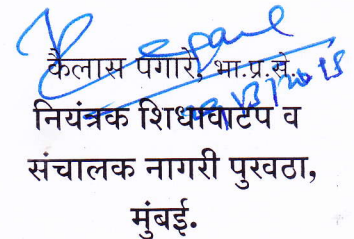 कैलास पगारे, भा.प्र.से.
नियंत्रक शिधावाटप व
संचालक नागरी पुरवठा,
मुंबई.